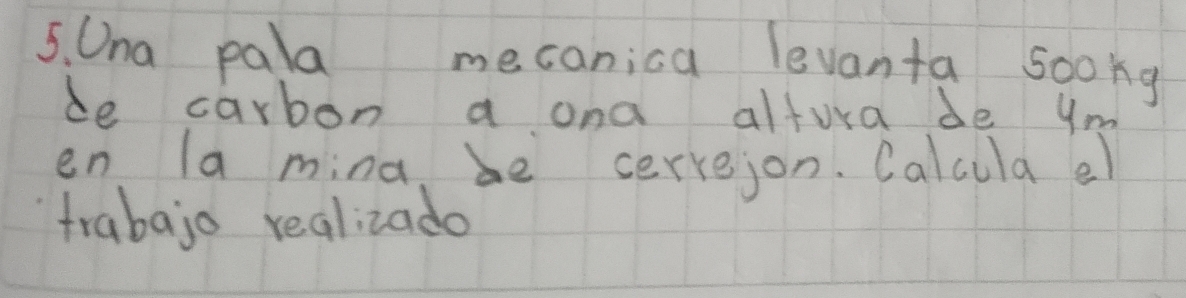 5. Una pala mecanica levanta 500kg
de carbon a una altura de 4m
en la mina de cerrejon. Calcula el
trabajo realizado